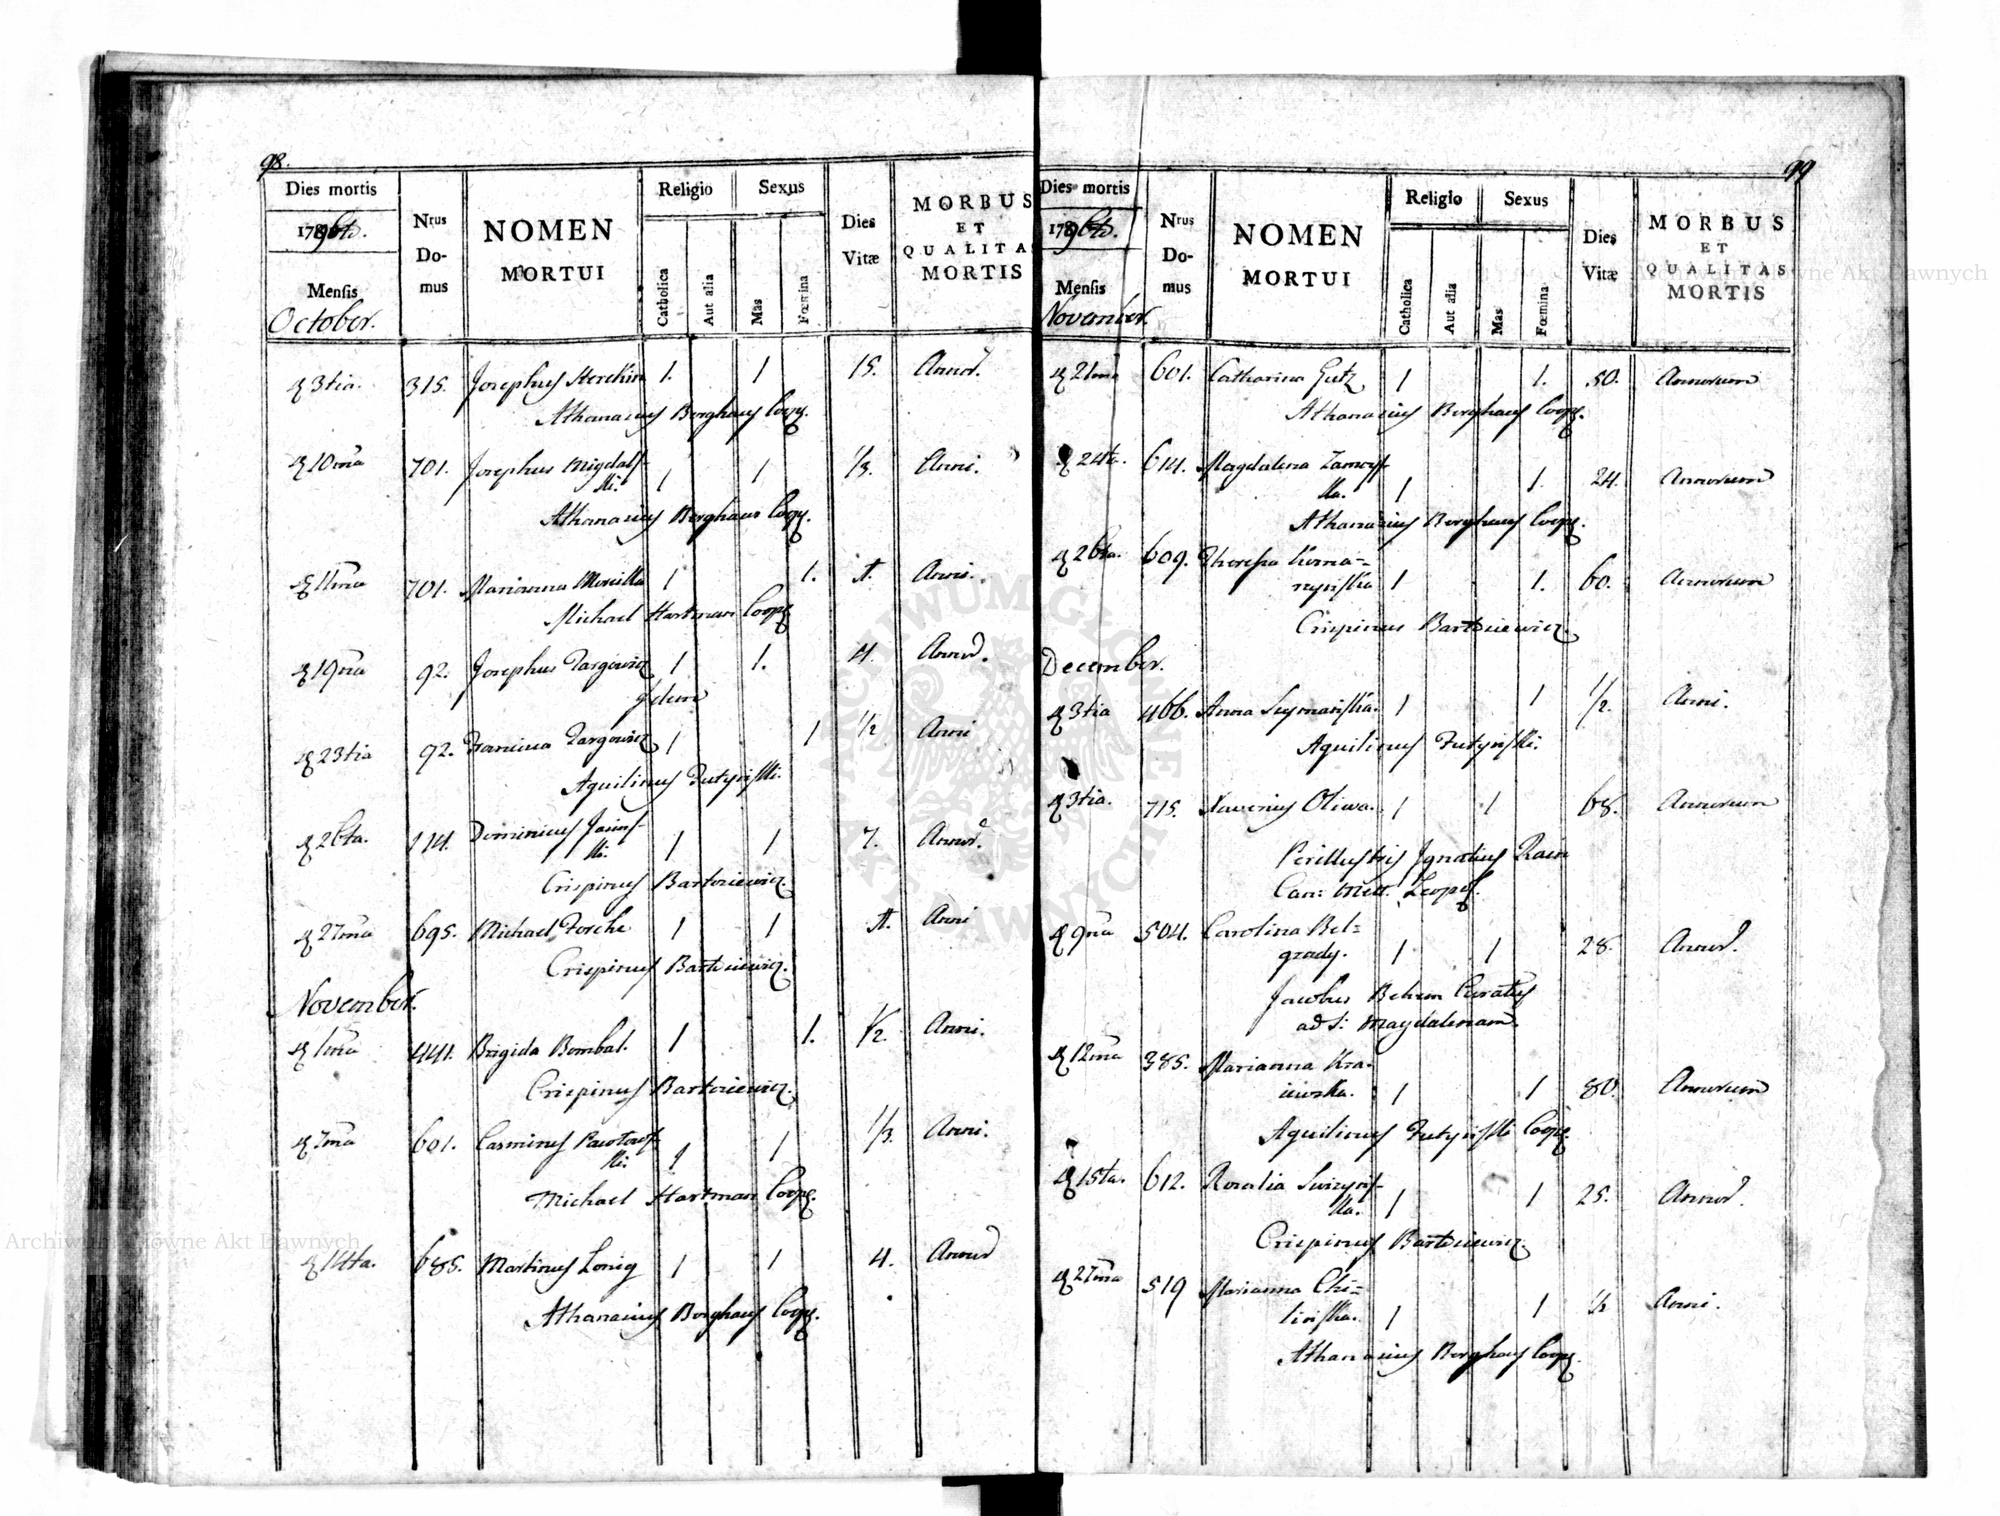 98.
Dies mortis
1796to.
Mensis
October.
Nrus Domus
NOMEN
MORTUI
Religio
Catholica
Aut alia
Sexus
Mas
Fœmina
Dies Vitæ
MORBUS
ET
QUALITAS
MORTIS
3tia. 315. Josephus 1. 1 15. Annor.
Athanasius Berghaus Coop.
10ma 701. Josephus Migdals-
ki. 1 1 1/3. Anni.
Athanasius Berghaus Coop.
11ma 701. Marianna 1 1. 1. Anni.
Michael Hartman Coop.
19na 92. Josephus Targowicz 1 1. 4. Annor.
Idem
23tia 92. Targowicz 1 1 1/2 Anni
Aquilinus
26ta. 114. Dominicus
ki. 1 1 7. Annor.
Crispinus Bartosiewicz.
27ma 695. Michael Forche 1 1 1. Anni
Crispinus Bartosiewicz.
November.
1ma 441. Brigida Bombal. 1 1. 1/2. Anni.
Crispinus Bartosiewicz.
7ma 601. Pawlows-
ki. 1 1 1/3. Anni.
Michael Hartman Coop.
14ta. 685. Martinus 1 1 4. Annor
Athanasius Berghaus Coop.
99
Dies mortis
1796to.
Mensis
November.
Nrus Domus
NOMEN
MORTUI
Religio
Catholica
Aut alia
Sexus
Mas
Fœmina
Dies Vitæ
MORBUS
ET
QUALITAS
MORTIS
21ma 601. Catharina Gutz 1 1. 50. Annorum
Athanasius Berghaus Coop.
24ta. 614. Magdalena Zamoys-
ka. 1 1. 24. Annorum
Athanasius Berghaus Coop.
26ta. 609. Theresia
1 1. 60. Annorum
Crispinus Bartosiewicz.
December.
3tia 466. Anna 1 1 1/2. Anni.
Aquilinus
3tia. 715. Xaverius Oliwa. 1 1 68. Annorum
Perillustris Ignatius Rain
Can: Metr. Leopol.
9na 504. Carolina Bel=
grady. 1 1 28. Annor.
Jacobus Behem Curatus
ad S: Magdalenam.
12ma 385. Marianna Kra-
iewska. 1 1 80. Annorum
Aquilinus Coop.
15ta. 612. Rosalia
ka. 1 1 25. Annor.
Crispinus Bartosiewicz.
27ma 519 Marianna Chi=
linska. 1 1 1/2 Anni.
Athanasius Berghaus Coop.
ARCHIWUM GŁÓWNE AKT DAWNYCH
Archiwum Główne Akt Dawnych
Archiwum Główne Akt Dawnych